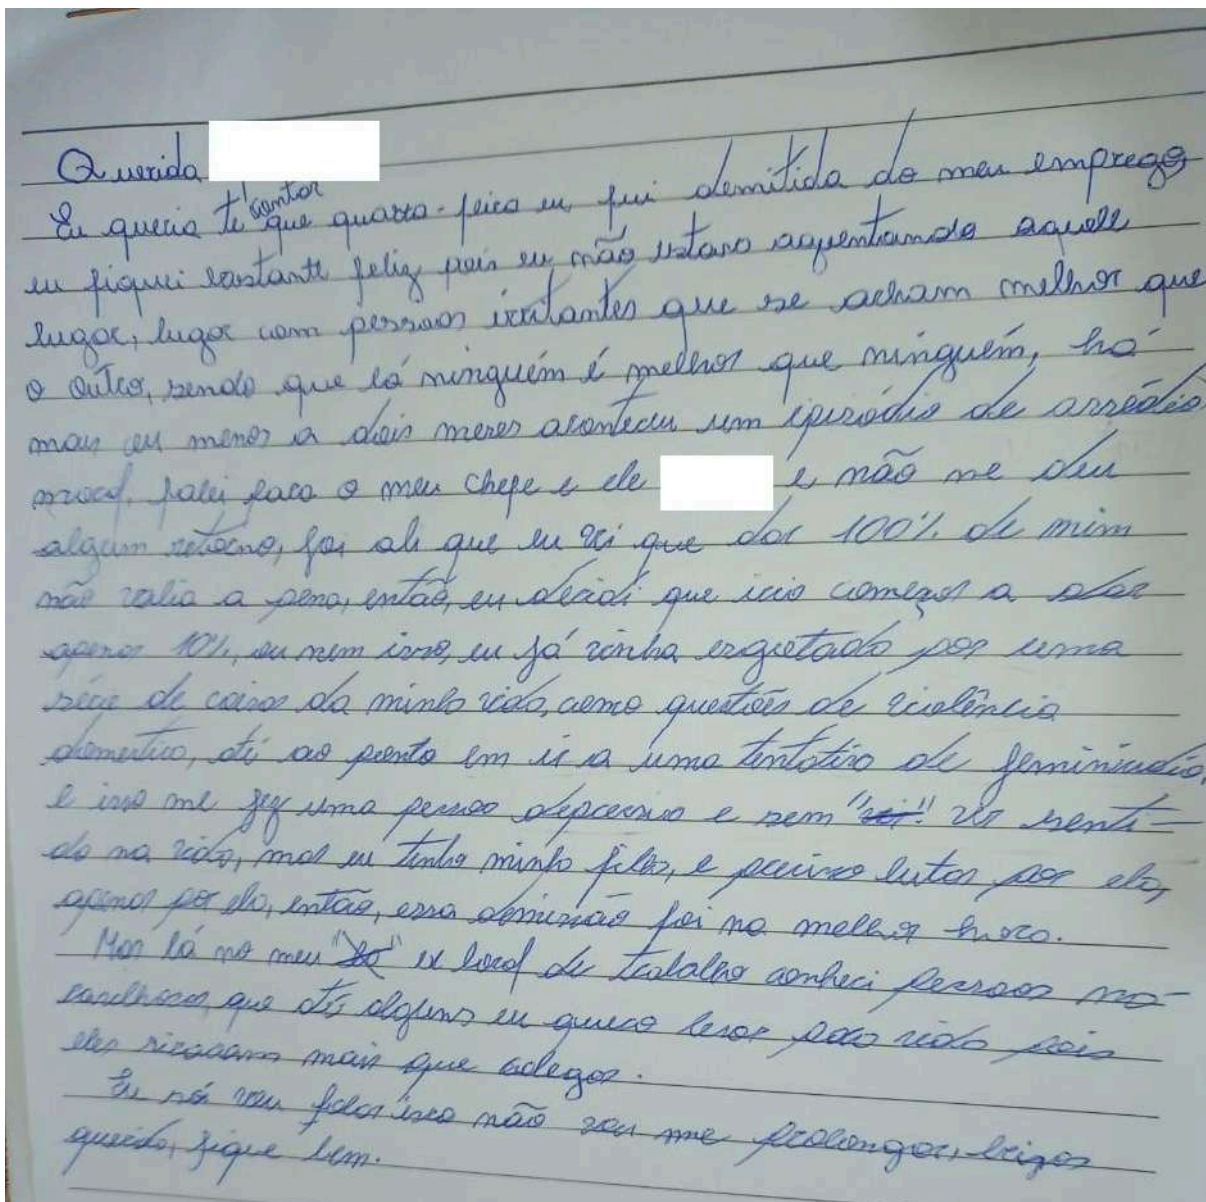 Querida
Eu queria te contar que quarta-feira eu fui demitida do meu emprego
eu fiquei bastante feliz pois eu não estava aguentando aquele
lugar, lugar com pessoas irritantes que se acham melhor que
o outro, sendo que lá ninguém é melhor que ninguém, há
mais ou menos a dois meses aconteceu um episódio de assédio
moral, falei para o meu chefe e ele e não me deu
algum retorno, foi ali que eu vi que dar 100% de mim
não valia a pena, então, eu decidi que iria começar a dar
apenas 10%, ou nem isso, eu já vinha esgotada por uma
série de coisas da minha vida, como questões de violência
domestica, até ao ponto em ir a uma tentativa de feminicidio,
e isso me fez uma pessoa depressiva e sem "vêr" ver senti-
do na vida, mas eu tenho minha filha, e preciso lutar por ela,
apenas por ela, então, essa demissão foi na melhor hora.
Mas lá no meu ex local de trabalho conheci pessoas ma-
ravilhosas, que até alguns eu quero levar para vida pois
eles viraram mais que colegas.
Eu só vou falar isso não vou me prolongar, beijos
querida, fique bem.